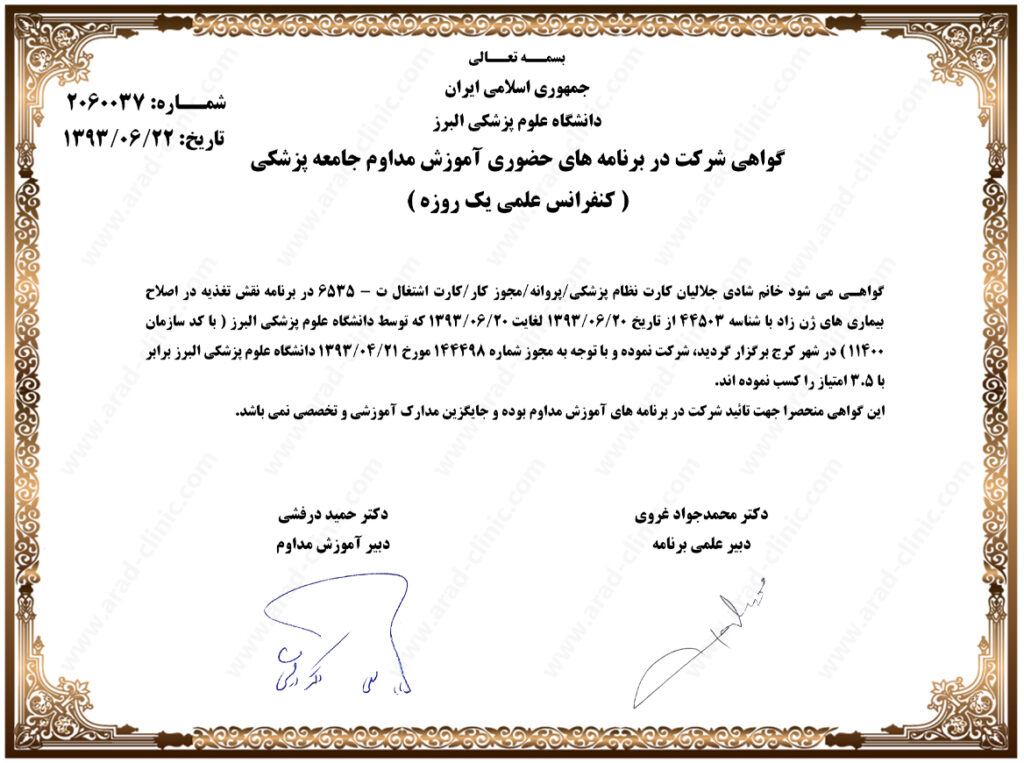 بسمـــه تعـــالی
جمهوری اسلامی ایران
دانشگاه علوم پزشکی البرز
شمـــاره: ۲۰۶۰۰۳۷
تاریخ: ۱۳۹۳/۰۶/۲۲
گواهی شرکت در برنامه های حضوری آموزش مداوم جامعه پزشکی
( کنفرانس علمی یک روزه )
گواهـی می شود خانم شادی جلالیان کارت نظام پزشکی/پروانه/مجوز کار/کارت اشتغال ت – ۶۵۳۵ در برنامه نقش تغذیه در اصلاح
بیماری های ژن زاد با شناسه ۴۴۵۰۳ از تاریخ ۱۳۹۳/۰۶/۲۰ لغایت ۱۳۹۳/۰۶/۲۰ که توسط دانشگاه علوم پزشکی البرز ( با کد سازمان
۱۱۴۰۰) در شهر کرج برگزار گردید، شرکت نموده و با توجه به مجوز شماره ۱۴۴۴۹۸ مورخ ۱۳۹۳/۰۴/۲۱ دانشگاه علوم پزشکی البرز برابر
با ۳.۵ امتیاز را کسب نموده اند.
این گواهی منحصرا جهت تائید شرکت در برنامه های آموزش مداوم بوده و جایگزین مدارک آموزشی و تخصصی نمی باشد.
دکتر محمدجواد غروی
دبیر علمی برنامه
دکتر حمید درفشی
دبیر آموزش مداوم
www.arad-clinic.com